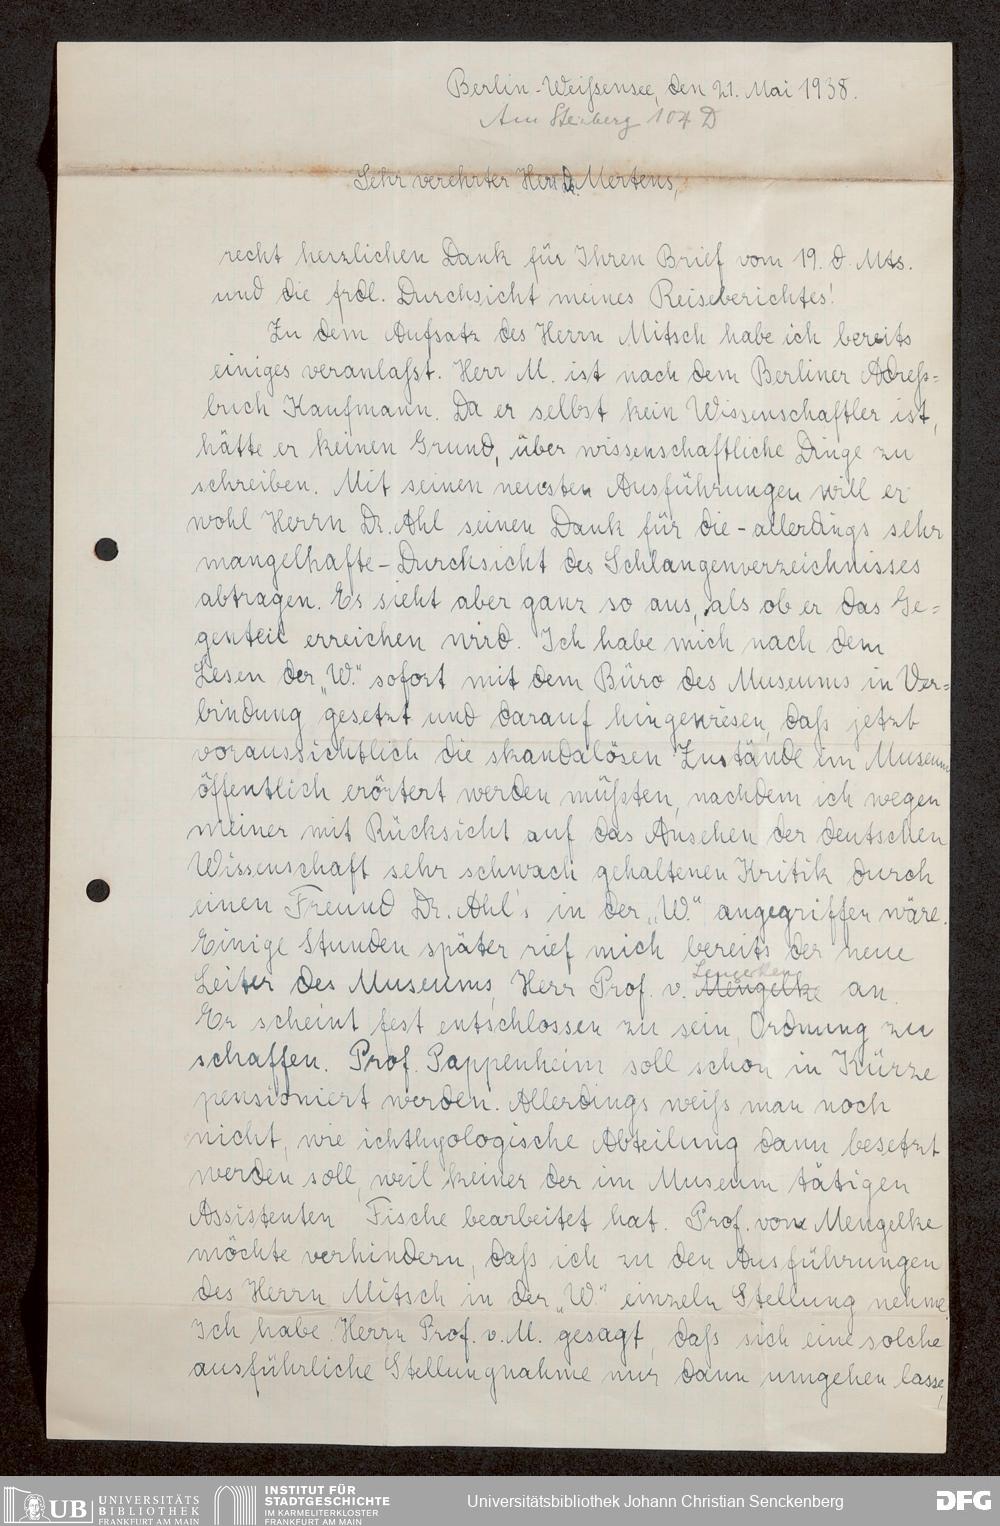 Berlin-Weißensee, den 21. Mai 1938.
Am Steinberg 104 D
Sehr verehrter Herr Dr. Mertens,
recht herzlichen Dank für Ihren Brief vom 19. d. Mts.
und die frdl. Durchsicht meines Reiseberichtes!
Zu dem Aufsatz des Herrn Mitsch habe ich bereits
einiges veranlaßt. Herr M. ist nach dem Berliner Adreß=
buch Kaufmann. Da er selbst kein Wissenschaftler ist,
hätte er keinen Grund, über wissenschaftliche Dinge zu
schreiben. Mit seinen neusten Ausführungen will er
wohl Herrn Dr. Ahl seinen Dank für die - allerdings sehr
mangelhafte - Durchsicht des Schlangenverzeichnisses
abtragen. Es sieht aber ganz so aus, als ob er das Ge=
genteil erreichen wird. Ich habe mich nach dem
Lesen der „W.“ sofort mit dem Büro des Museums in Ver=
bindung gesetzt und darauf hingewiesen, daß jetzt
voraussichtlich die skandalösen Zustände im Museum
öffentlich erörtert werden müßten, nachdem ich wegen
meiner mit Rücksicht auf das Ansehen der deutschen
Wissenschaft sehr schwach gehaltenen Kritik durch
einen Freund Dr. Ahl's in der „W.“ angegriffen wäre.
Einige Stunden später rief mich bereits der neue
Leiter des Museums, Herr Prof. v. Mengelke Lengerken an.
Er scheint fest entschlossen zu sein, Ordnung zu
schaffen. Prof. Pappenheim soll schon in Kürze
pensioniert werden. Allerdings weiß man noch
nicht, wie ichthyologische Abteilung dann besetzt
werden soll, weil keiner der im Museum tätigen
Assistenten Fische bearbeitet hat. Prof. von Mengelke
möchte verhindern, daß ich zu den Ausführungen
des Herrn Mitsch in der „W.“ einzeln Stellung nehme.
Ich habe Herrn Prof. v. M. gesagt, daß sich eine solche
ausführliche Stellungnahme nur dann umgehen lasse,
UB UNIVERSITÄTS
BIBLIOTHEK
FRANKFURT AM MAIN
INSTITUT FÜR
STADTGESCHICHTE
IM KARMELITERKLOSTER
FRANKFURT AM MAIN
Universitätsbibliothek Johann Christian Senckenberg
DFG